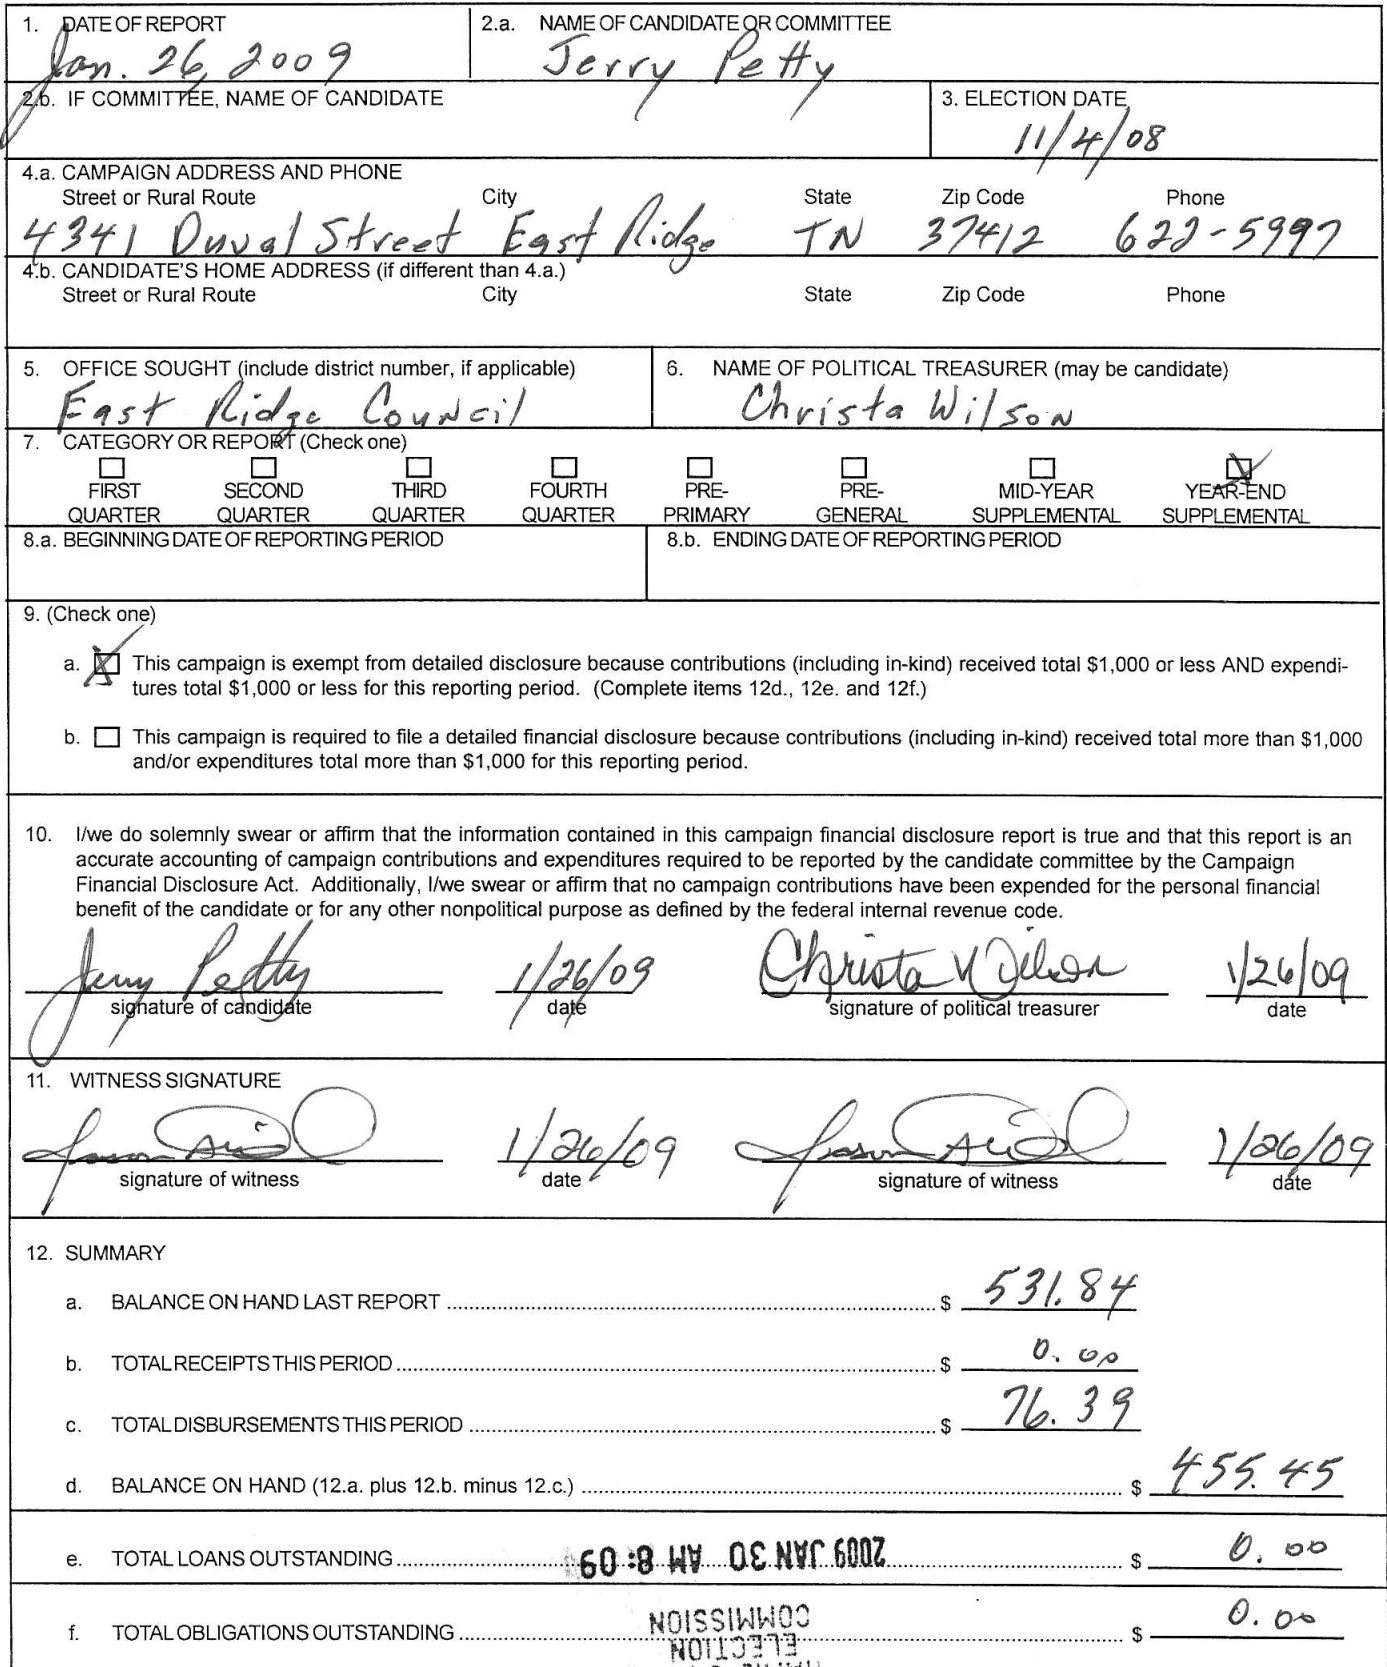 1. DATE OF REPORT
Jan. 26, 2009
2.a. NAME OF CANDIDATE OR COMMITTEE
Jerry Petty
2.b. IF COMMITTEE, NAME OF CANDIDATE
3. ELECTION DATE
11/4/08
4.a. CAMPAIGN ADDRESS AND PHONE
Street or Rural Route City State Zip Code Phone
4341 Duval Street East Ridge TN 37412 622-5997
4.b. CANDIDATE'S HOME ADDRESS (if different than 4.a.)
Street or Rural Route City State Zip Code Phone
5. OFFICE SOUGHT (include district number, if applicable)
East Ridge Council
6. NAME OF POLITICAL TREASURER (may be candidate)
Christa Wilson
7. CATEGORY OR REPORT (Check one)
FIRST SECOND THIRD FOURTH PRE- PRE- MID-YEAR YEAR-END
QUARTER QUARTER QUARTER QUARTER PRIMARY GENERAL SUPPLEMENTAL SUPPLEMENTAL
8.a. BEGINNING DATE OF REPORTING PERIOD
8.b. ENDING DATE OF REPORTING PERIOD
9. (Check one)
a. X This campaign is exempt from detailed disclosure because contributions (including in-kind) received total $1,000 or less AND expendi-
tures total $1,000 or less for this reporting period. (Complete items 12d., 12e. and 12f.)
b. This campaign is required to file a detailed financial disclosure because contributions (including in-kind) received total more than $1,000
and/or expenditures total more than $1,000 for this reporting period.
10. I/we do solemnly swear or affirm that the information contained in this campaign financial disclosure report is true and that this report is an
accurate accounting of campaign contributions and expenditures required to be reported by the candidate committee by the Campaign
Financial Disclosure Act. Additionally, I/we swear or affirm that no campaign contributions have been expended for the personal financial
benefit of the candidate or for any other nonpolitical purpose as defined by the federal internal revenue code.
Jerry Petty 1/26/09 Christa Wilson 1/26/09
signature of candidate date signature of political treasurer date
11. WITNESS SIGNATURE
1/26/09 1/26/09
signature of witness date signature of witness date
12. SUMMARY
a. BALANCE ON HAND LAST REPORT $ 531.84
b. TOTAL RECEIPTS THIS PERIOD $ 0.00
c. TOTAL DISBURSEMENTS THIS PERIOD $ 76.39
d. BALANCE ON HAND (12.a. plus 12.b. minus 12.c.) $ 455.45
e. TOTAL LOANS OUTSTANDING $ 0.00
2009 JAN 30 AM 8:09
f. TOTAL OBLIGATIONS OUTSTANDING $ 0.00
ELECTION
COMMISSION